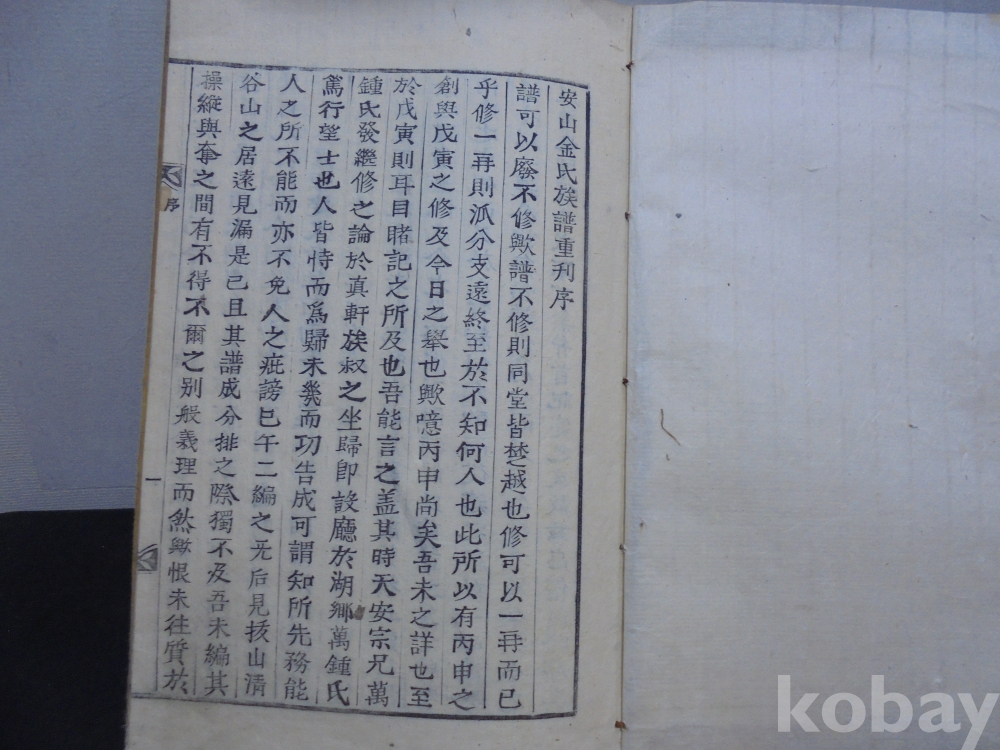 安山金氏族譜重刋序
譜可以廢不修歟譜不修則同堂皆楚越也修可以一再而已
乎修一再則泒分支遠終至於不知何人也此所以有丙申之
創與戊寅之修及今日之擧也歟噫丙申尚矣吾未之詳也至
於戊寅則耳目睹記之所及也吾能言之盖其時天安宗兄萬
鍾氏發繼修之論於真軒族叔之坐歸卽設廳於湖鄕萬鍾氏
篤行望士也人皆恃而爲歸未幾而功告成可謂知所先務能
人之所不能而亦不免人之疵謗巳午二編之无后見拔山清
谷山之居遠見漏是已且其譜成分排之際獨不及吾未編其
操縱與奪之間有不得不爾之别般義理而然歟恨未往質於
序
一
kobay